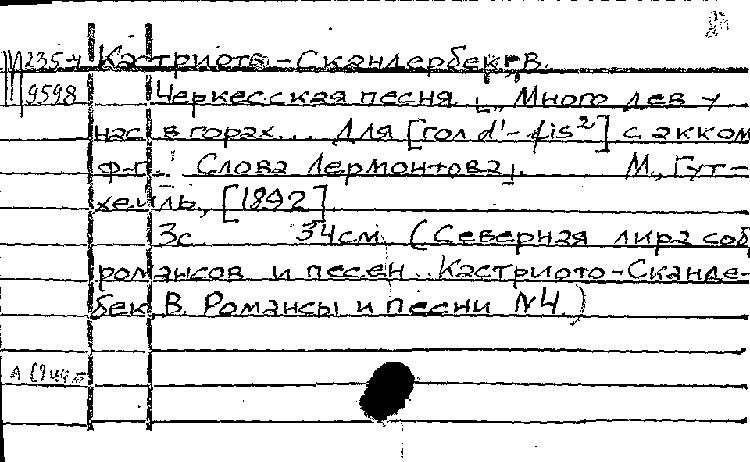 М 235-4 Кастриото-Скандербек, В.
9598 Черкесская песня. „Много дев у
нас в горах... Для [гол d'-fis²] с акком
ф-п. Слова Лермонтова. М., Гут-
хейль, [1892]
3с. 34см. (Северная лира соб
романсов и песен. Кастриото-Сканде-
бек, В. Романсы и песни №4.)